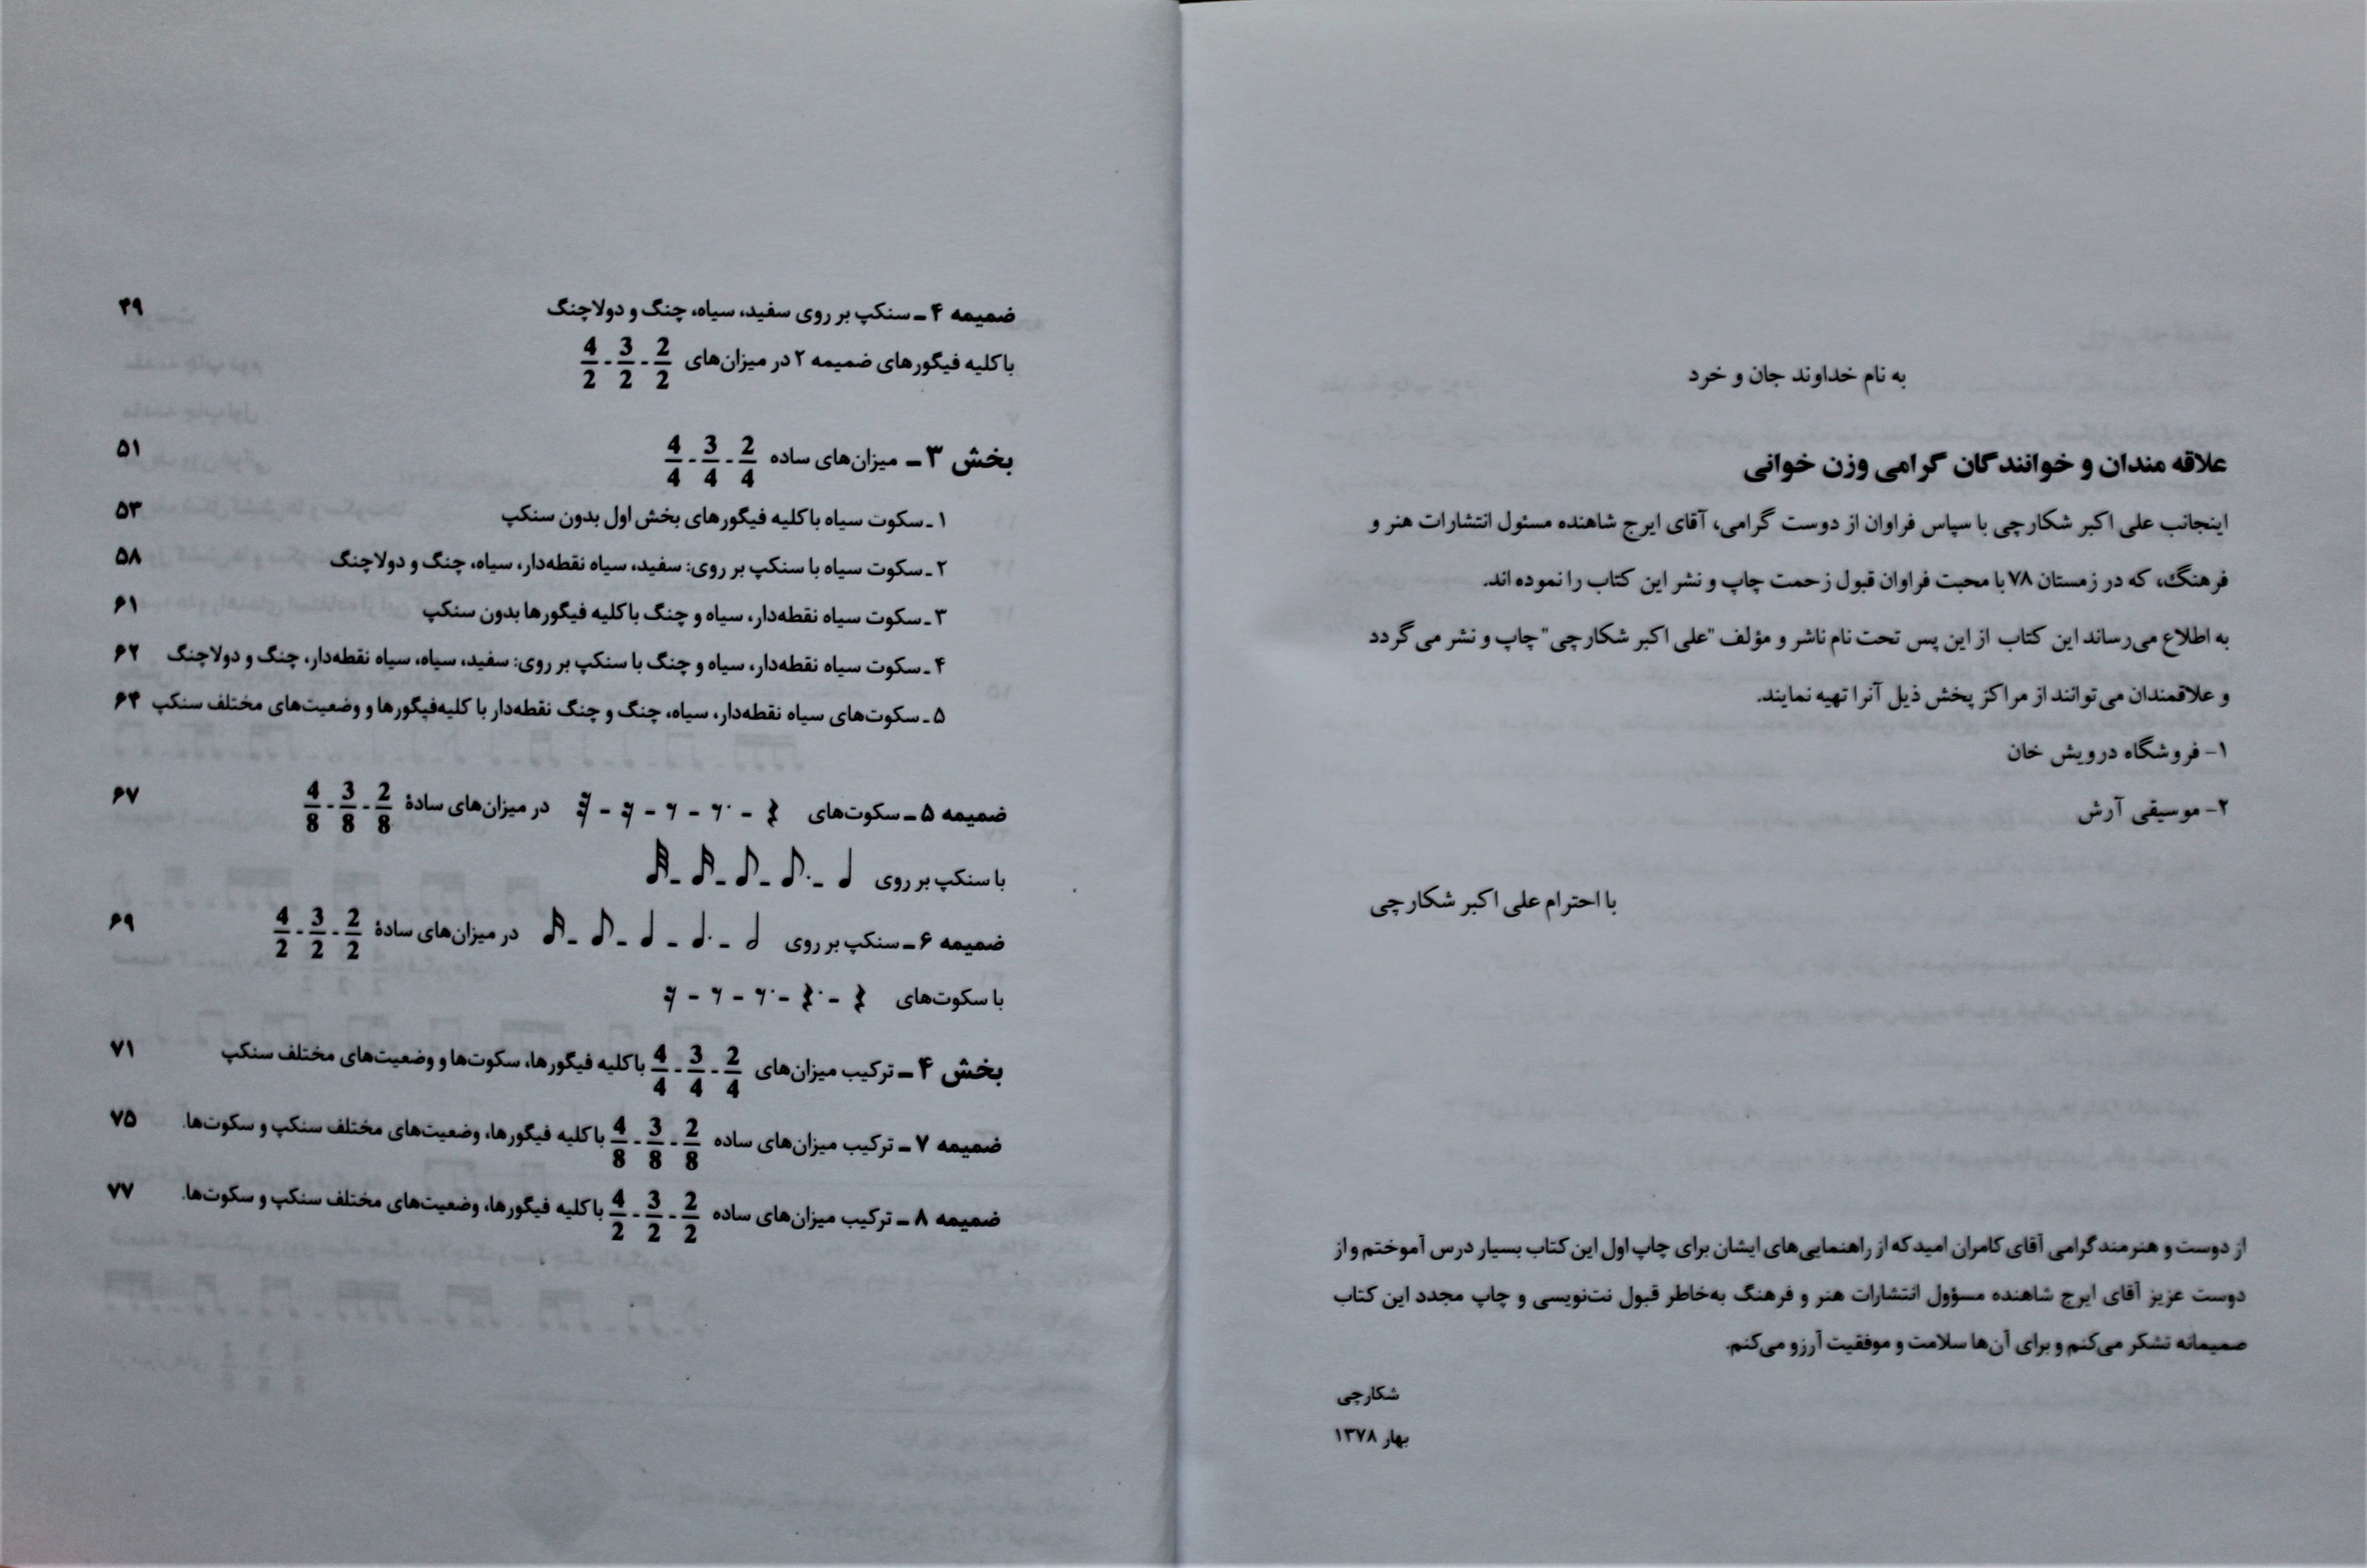 به نام خداوند جان و خرد
علاقه مندان و خوانندگان گرامی وزن خوانی
اینجانب علی اکبر شکارچی با سپاس فراوان از دوست گرامی، آقای ایرج شاهنده مسئول انتشارات هنر و
فرهنگ، که در زمستان ۷۸ با محبت فراوان قبول زحمت چاپ و نشر این کتاب را نموده اند.
به اطلاع می‌رساند این کتاب از این پس تحت نام ناشر و مؤلف "علی اکبر شکارچی" چاپ و نشر می گردد
و علاقمندان می‌توانند از مراکز پخش ذیل آنرا تهیه نمایند.
۱- فروشگاه درویش خان
۲- موسیقی آرش
با احترام علی اکبر شکارچی
از دوست و هنرمند گرامی آقای کامران امید که از راهنمایی‌های ایشان برای چاپ اول این کتاب بسیار درس آموختم و از
دوست عزیز آقای ایرج شاهنده مسؤول انتشارات هنر و فرهنگ به‌خاطر قبول نت‌نویسی و چاپ مجدد این کتاب
صمیمانه تشکر می‌کنم و برای آن‌ها سلامت و موفقیت آرزو می‌کنم.
شکارچی
بهار ۱۳۷۸
ضمیمه ۴ ـ سنکپ بر روی سفید، سیاه، چنگ و دولاچنگ ۴۹
با کلیه فیگورهای ضمیمه ۲ در میزان‌های 2/2 - 3/2 - 4/2
بخش ۳ ـ میزان‌های ساده 2/4 - 3/4 - 4/4 ۵۱
۱ ـ سکوت سیاه با کلیه فیگورهای بخش اول بدون سنکپ ۵۳
۲ ـ سکوت سیاه با سنکپ بر روی: سفید، سیاه نقطه‌دار، سیاه، چنگ و دولاچنگ ۵۸
۳ ـ سکوت سیاه نقطه‌دار، سیاه و چنگ با کلیه فیگورها بدون سنکپ ۶۱
۴ ـ سکوت سیاه نقطه‌دار، سیاه و چنگ با سنکپ بر روی: سفید، سیاه، سیاه نقطه‌دار، چنگ و دولاچنگ ۶۲
۵ ـ سکوت‌های سیاه نقطه‌دار، سیاه، چنگ و چنگ نقطه‌دار با کلیه‌فیگورها و وضعیت‌های مختلف سنکپ ۶۴
ضمیمه ۵ ـ سکوت‌های در میزان‌های سادهٔ 2/8 - 3/8 - 4/8 ۶۷
با سنکپ بر روی
ضمیمه ۶ ـ سنکپ بر روی در میزان‌های سادهٔ 2/2 - 3/2 - 4/2 ۶۹
با سکوت‌های
بخش ۴ ـ ترکیب میزان‌های 2/4 - 3/4 - 4/4 با کلیه فیگورها، سکوت‌ها و وضعیت‌های مختلف سنکپ ۷۱
ضمیمه ۷ ـ ترکیب میزان‌های ساده 2/8 - 3/8 - 4/8 با کلیه فیگورها، وضعیت‌های مختلف سنکپ و سکوت‌ها. ۷۵
ضمیمه ۸ ـ ترکیب میزان‌های ساده 2/2 - 3/2 - 4/2 با کلیه فیگورها، وضعیت‌های مختلف سنکپ و سکوت‌ها. ۷۷